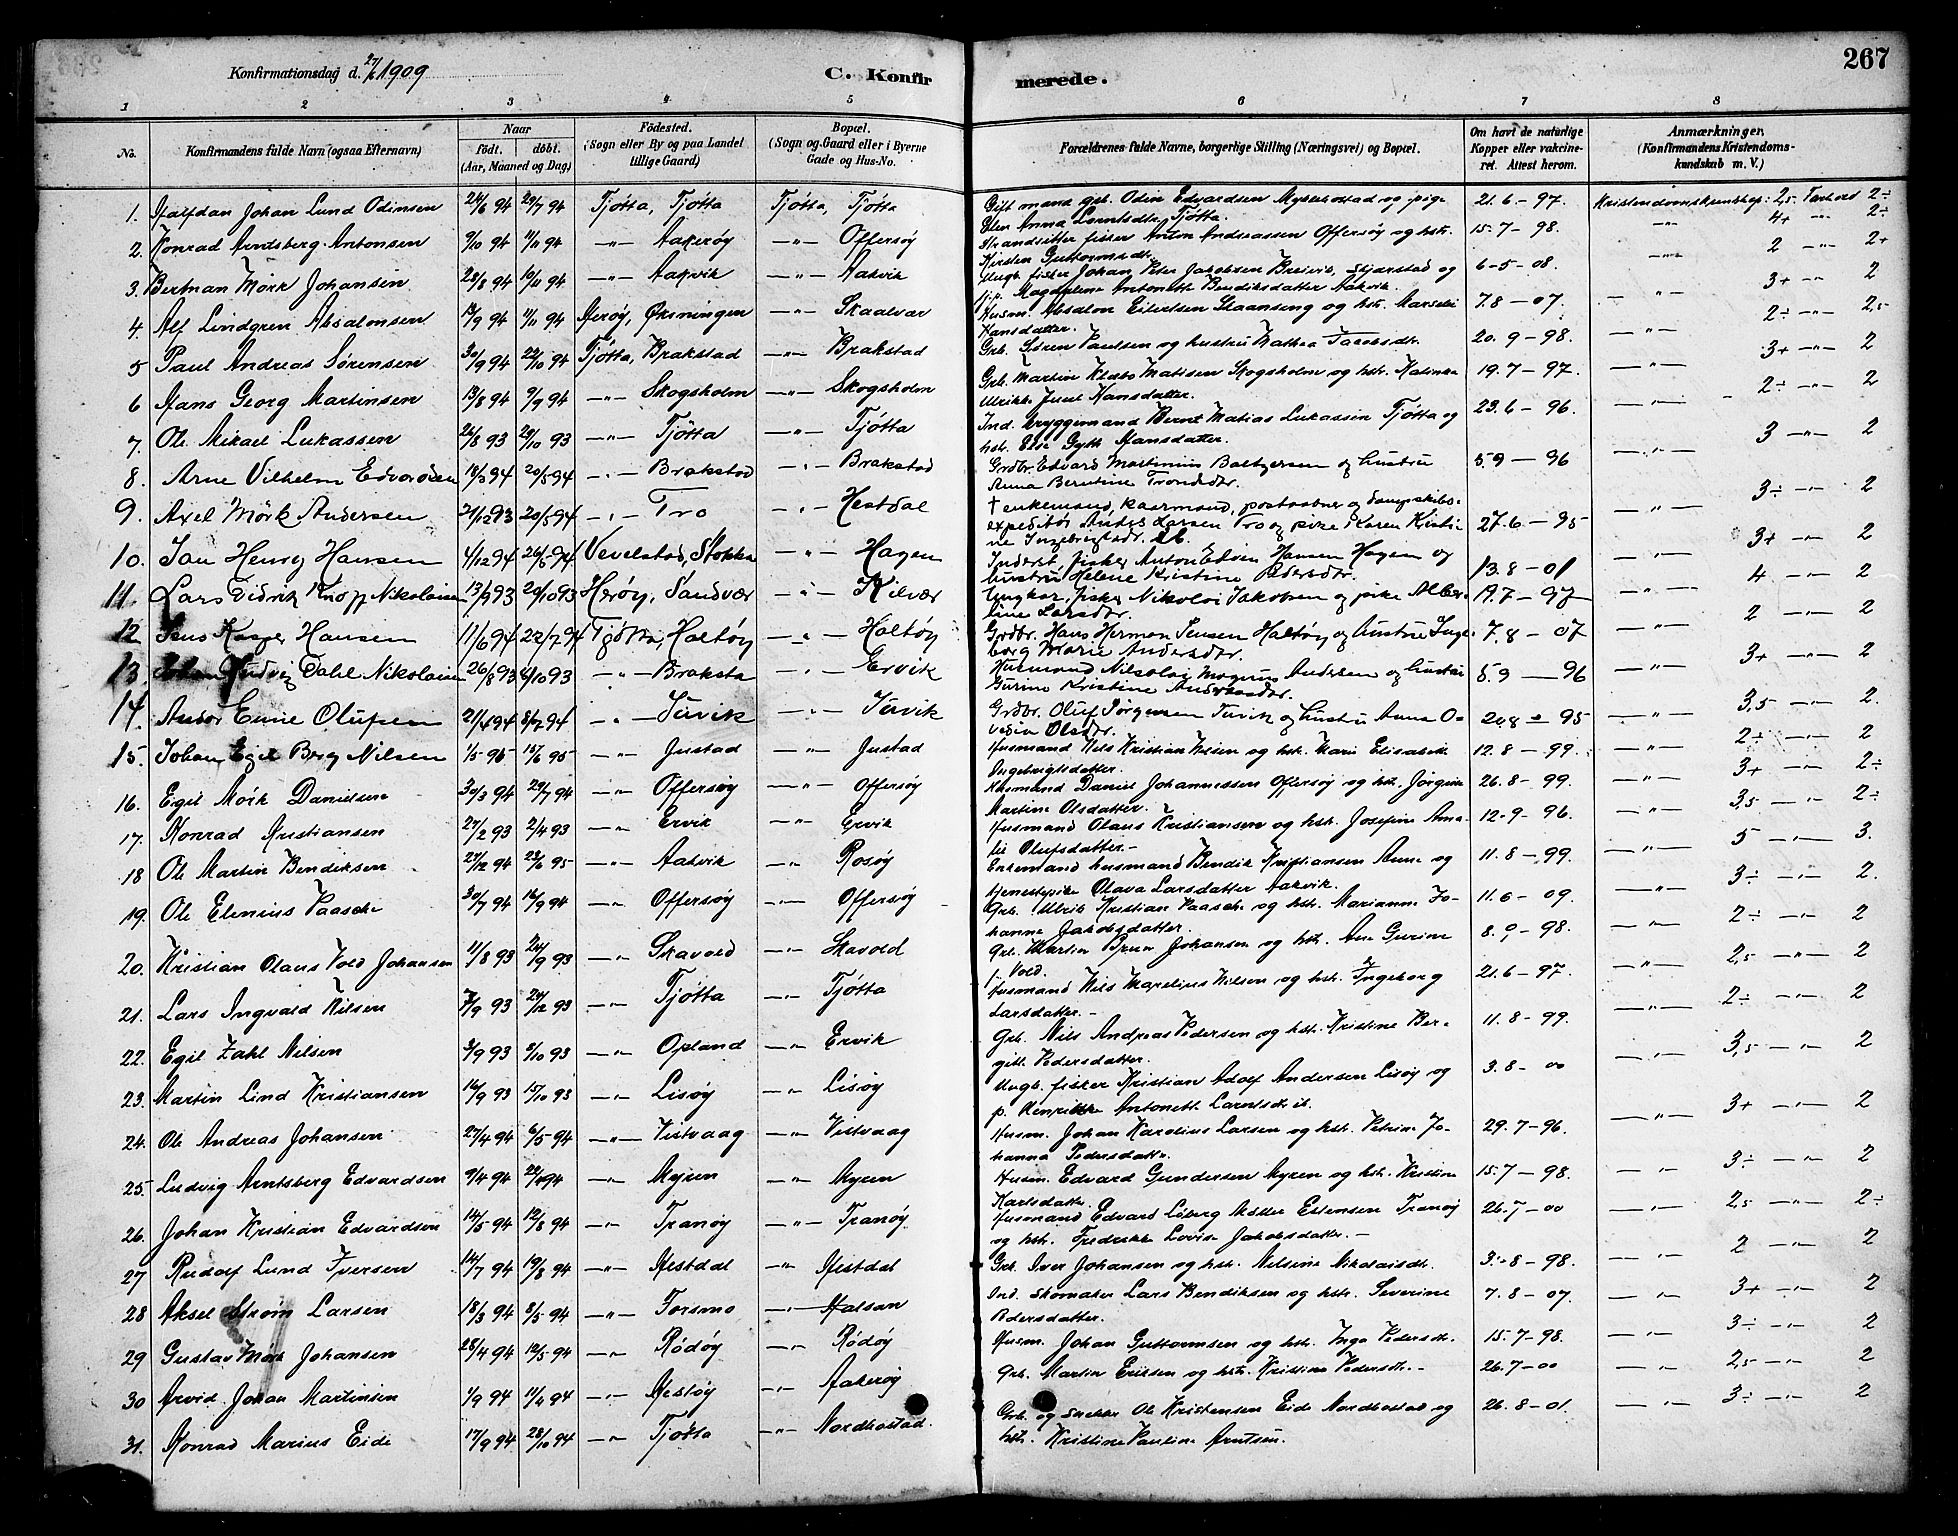 Konfirmationsdag d. 27/6 1909
C. Konfirmerede.
267
1 2 3 4 5 6 7 8
No.
Konfirmandens fulde Navn (ogsaa Efternavn)
Naar
født. døbt.
(Aar, Maaned og Dag)
Fødested.
(Sogn eller By og paa Landet tillige Gaard)
Bopæl.
(Sogn og Gaard eller i Byerne Gade og Hus-No.
Forældrenes fulde Navne, borgerlige Stilling (Næringsvei) og Bopæl.
Om havt de naturlige Kopper eller vakcineret. Attest herom.
Anmærkninger.
(Konfirmandens Kristendomskundskab m. V.)
1. Halfdan Johan Lund Odinsen 24/6 94 29/7 94 Tjøtta, Tjøtta Tjøtta, Tjøtta Gift mand gbr. Odin Edvardsen og pige 21.6-97. 2,5 2÷
Elen Anna Tjøtta.
2. Konrad Arntsberg Antonsen 9/10 94 11/11 94 -"- Aakerøy -"- Offersøy Strandsitter fisker Anton Andreassen Offersøy og hst. 15.7-98. -"- 4+ -"- 2÷
Kirsten Guttormsdt.
3. Bertman Mørk Johansen 28/8 94 10/11 94 -"- Aakvik -"- Aakvik Ungk. fisker Johan Peter Jakobsen og 6-5-08. -"- 2 -"- 2+
Magdalene Antonette Bendiksdatter Aakvik.
4. Alf Lindgren Absalonsen 19/9 94 11/11 94 Herøy, Øksningen -"- Skaalvær Husm. Absalon Eilertsen og hst. 7.8-07. -"- 3+ -"- 2
Hansdatter.
5 Paul Andreas Sørensen 30/9 94 22/10 94 Tjøtta, Brakstad -"- Brakstad Grb. Søren Paulsen og hustru Mathea Jacobsdt. 20.9-98. -"- 2÷ -"- 2,5
6 Hans Georg Martinsen 13/8 94 9/9 94 -"- Skogsholm -"- Skogsholm Grb. Martin Matisen Skogsholm og hst. 19.7-97. -"- 3+ -"- 2
Ulrikke Juul Hansdatter.
7. Ole Mikael Lukassen 26/8 93 29/10 93 -"- Tjøtta -"- Tjøtta Ind. bryggemand Bernt Matias Lukassen Tjøtta og 23.6-96. -"- 2÷ -"- 2
hst. Else Gytte Hansdatter.
8. Arne Vilhelm Edvardsen 18/3 94 20/5 94 -"- Brakstad -"- Brakstad Grdbr. Edvard Martinius Baltzersen og hustru 5.9-96 -"- 3 -"- 2
Anna Berntine Trondsdtr.
9. Axel Mörk Andersen 21/12 93 20/5 94 -"- Tro -"- Hestdal † enkemand, kaarmand, postaabner og dampskibs- 27.6-95 -"- 3÷ -"- 2
expeditør Anders Larsen Tro og pike Karen Kristi-
ne Ingebrigtsdr.
10. Jan Henry Hansen 4/12 94 26/5 94 Vevelstad, Stokka -"- Hagen Inderst, fisker Anton Edvin Hansen Hagen og 13.8-01 -"- 3+ -"- 2
hustru Helene Kristine Pedersdtr.
11. Lars Didrik Knopf Nikolaisen 13/9 93 29/10 93 Herøy, Sandvær -"- Kilvær Ungkar, fisker Nikolai Jakobsen og pike Alber- 19.7-97 -"- 4 -"- 2
tine Larsdtr.
12. Jens Kasper Hansen 11/6 94 22/7 94 Tjøtta, Haltøy -"- Haltøy Grdbr. Hans Herman Jensen Haltøy og hustru Inge- 7.8-07 -"- 2 -"- 2
borg Marie Andersdtr.
13. Johan Ludvig Dahl Nikolaisen 26/8 93 4/10 93 -"- Braksta -"- Ervik Husmand Nikolai Magnus Andersen og hustru 5.9-96 -"- 3+ -"- 2
Gurine Kristine Andreasdtr.
14. Andor Emil Olufsen 21/4 94 8/7 94 -"- Turvik -"- Turvik Grdbr. Oluf Jørgensen Turvik og hustru Anna O- 20.8-95 -"- 3,5 -"- 2.
vedia Olsdtr.
15. Johan Egil Berg Nilsen 1/5 95 15/6 95 -"- Justad -"- Justad Husmand Nils Kristian Nilsen og hst. Marie Elisabeth 12.8-99. -"- 2÷ -"- 2
Ingebrigtsdatter.
16. Egil Mørk Danielsen 30/3 94 29/7 94 -"- Offersøy -"- Offersøy Husmand Daniel Johannessen Offersøy og hst. Jørgine 26.8-99. -"- 3+ -"- 2÷
Martine Olsdatter.
17. Konrad Kristiansen 27/2 93 2/4 93 -"- Ervik -"- Ervik Husmand Olaus Kristiansen og hst. Josefine Ama- 12.9-96. -"- 3,5 -"- 2÷
lie Olufsdatter.-
18 Ole Martin Bendiksen 27/12 94 23/6 95 -"- Aakvik -"- Rosøy Enkemand husmand Bendik Kristiansen og 11.8-99. -"- 5 -"- 3.
tjenestepike Olava Larsdatter Aakvik.
19. Ole Elenius Paasche 30/7 94 16/9 94 -"- Offersøy -"- Offersøy Grb. Ulrik Kristian Paasche og hst. Marianne Jo- 11.6-09. -"- 3÷ -"- 2.
hanne Jakobsdatter.
20. Kristian Olaus Vold Johansen 11/8 93 24/9 93 -"- Skavold -"- Skavold Grb. Martin Bruun Johansen og hst. Ane Gurine 8.9-98. -"- 2÷ -"- 2
f. Vold.
21. Lars Ingvald Nilsen 7/9 93 24/12 93 -"- Tjøtta -"- Tjøtta Husmand Nils Marelius Nilsen og hst. Ingeborg 21.6-97. -"- 2,5 -"- 2
Larsdatter.-
22. Egil Zahl Nilsen 3/9 93 8/10 93 -"- Opland -"- Ervik Grb. Nils Andreas Pedersen og hst. Kristine Ber- 11.8-99. -"- 2÷ -"- 2
gitte Pedersdatter.
23. Martin Lind Kristiansen 16/9 93 15/10 93 -"- Lisøy -"- Lisøy Ungk. fisker Kristian Adolf Andersen Lisøy og 3.8-00 -"- 3,5 -"- 2
p. Henrikke Antonette
24. Ole Andreas Johansen 27/4 94 6/5 94 -"- Vistvaag -"- Vistvaag Husm. Johan Karelius Larsen og hst. Petrine Jo- 29.7-96. -"- 3+ -"- 2
hanna Pedersdatter.
25 Ludvig Arntsberg Edvardsen 9/4 94 94 -"- Myren -"- Myren Husm. Edvard Gundersen Myren og hst. Kristine 15.7-98. -"- 3÷ -"- 2
Karlsdatter.
26. Johan Kristian Edvardsen 14/5 94 12/8 94 -"- Tranøy -"- Tranøy Husmand Edvard Tranøy 26.7-00 -"- 2,5 -"- 2÷
og hst. Fredrikke Lovise Jakobsdatter.-
27 Rudolf Lund Iversen 14/7 94 19/8 94 -"- Hestdal -"- Hestdal Grb. Iver Johansen og hst. Nilsine Nikolaisdt. 3.8-98. -"- 2 -"- 2
28 Aksel Strøm Larsen 18/3 94 8/5 94 -"- Forsmo -"- Halsan Ind. Skomaker Lars Bendiksen og hst. Severine 7.8-07. -"- 3+ -"- 2
Pedersdatter.
29 Gustav Mørk Johansen 28/4 94 12/5 94 -"- Rödöy -"- Rödöy Husm. Johan Guttormsen og hst. Inga Pedersdt. 15.7-98. -"- 3÷ -"- 2
30 Arvid Johan Martinsen 1/9 94 94 -"- Hestöy -"- Aakerøy Grb. Martin Eriksen og hst. Kristine Pedersdt.- 26.7-00 -"- 2,5 -"- 2
31. Konrad Marius Eide 17/9 94 28/10 94 -"- Tjøtta -"- Nordbostad. Grb. og snekker Ole Kristensen Eide Nordbostad og 26.8-01. -"- 3÷ -"- 2
hst. Kristine Pauline Arntsen.